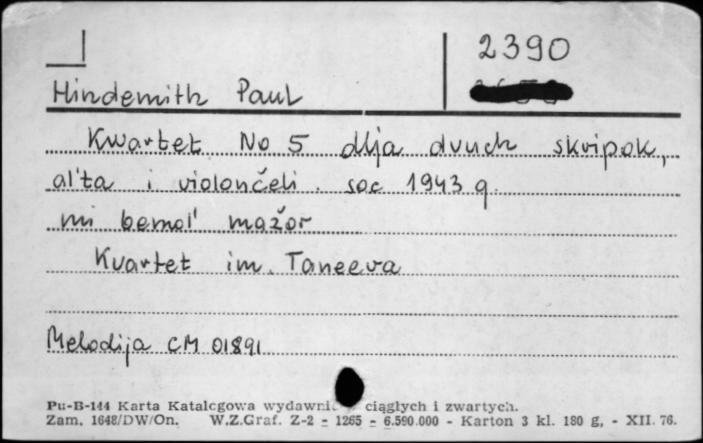 2390
Hindemith Paul
Kwartet No 5 dlja dvuch skripok,
al'ta i violončeli. soč 1943 g.
mi bemol' mažor
Kvartet im. Taneeva
Melodija CM 01891
Pu-B-144 Karta Katalogowa wydawnic ciągłych i zwartych.
Zam. 1648/DW/On. W.Z.Graf. Z-2 - 1265 - 6.590.000 - Karton 3 kl. 180 g, - XII. 76.